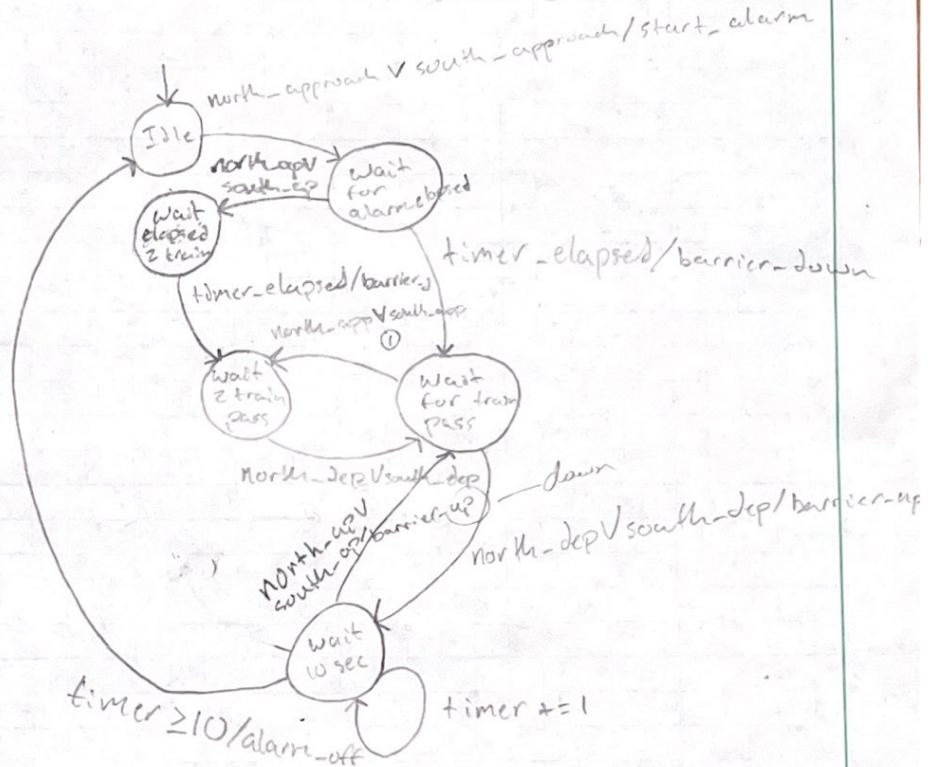 north_approach V south_approach/start_alarm
Idle
north_apV
south_ap
wait
for
alarm_elapsed
wait
elapsed
2 train
timer_elapsed/barrier_down
timer_elapsed/barrier_d
north_appVsouth_app
①
wait
2 train
pass
wait
for train
pass
north_depVsouth_dep
down
north_apV
south_ap/barrier_up
north_depVsouth_dep/barrier_up
wait
10 sec
timer += 1
timer ≥10/alarm_off